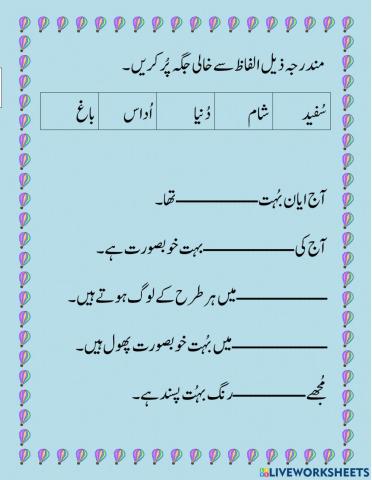 مندرجہ ذیل الفاظ سے خالی جگہ پُر کریں۔
سُفید شام دُنیا اُداس باغ
آج ایان بہُت ــــــــــــ تھا۔
آج کی ــــــــــــ بہت خوبصورت ہے۔
ــــــــــــ میں ہر طرح کے لوگ ہوتے ہیں۔
ــــــــــــ میں بہُت خوبصورت پھول ہیں۔
مُجھے ــــــــــــ رنگ بہُت پسند ہے۔
LIVEWORKSHEETS